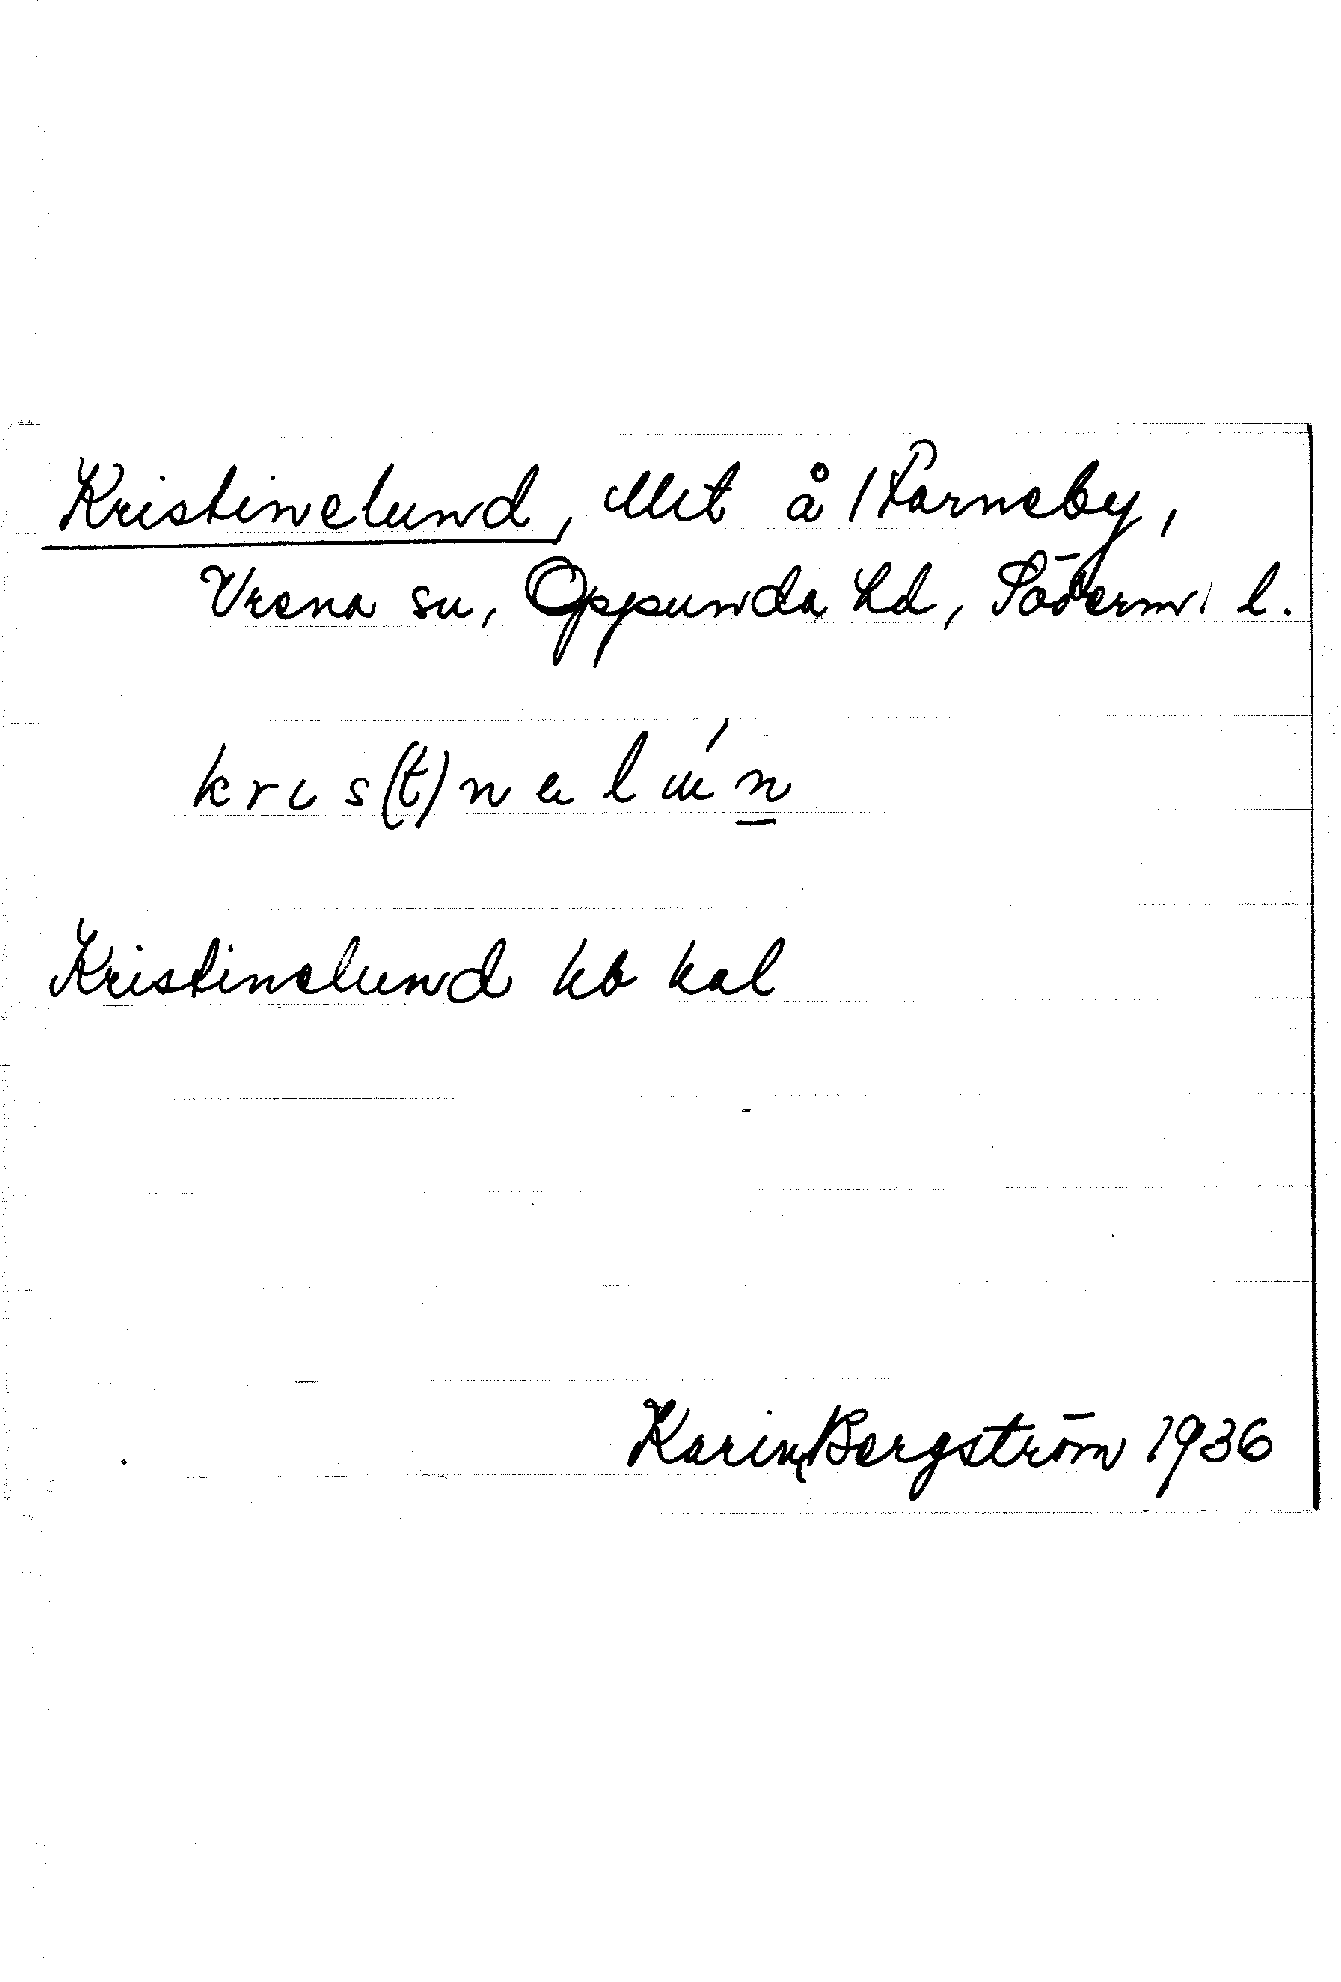 Kristinelund, llht å 1 Farneby,
Vrena sn, Oppunda hd, Söderm. l.
kris(t)nelún
Kristinelund kb kal
Karin Bergström 1936